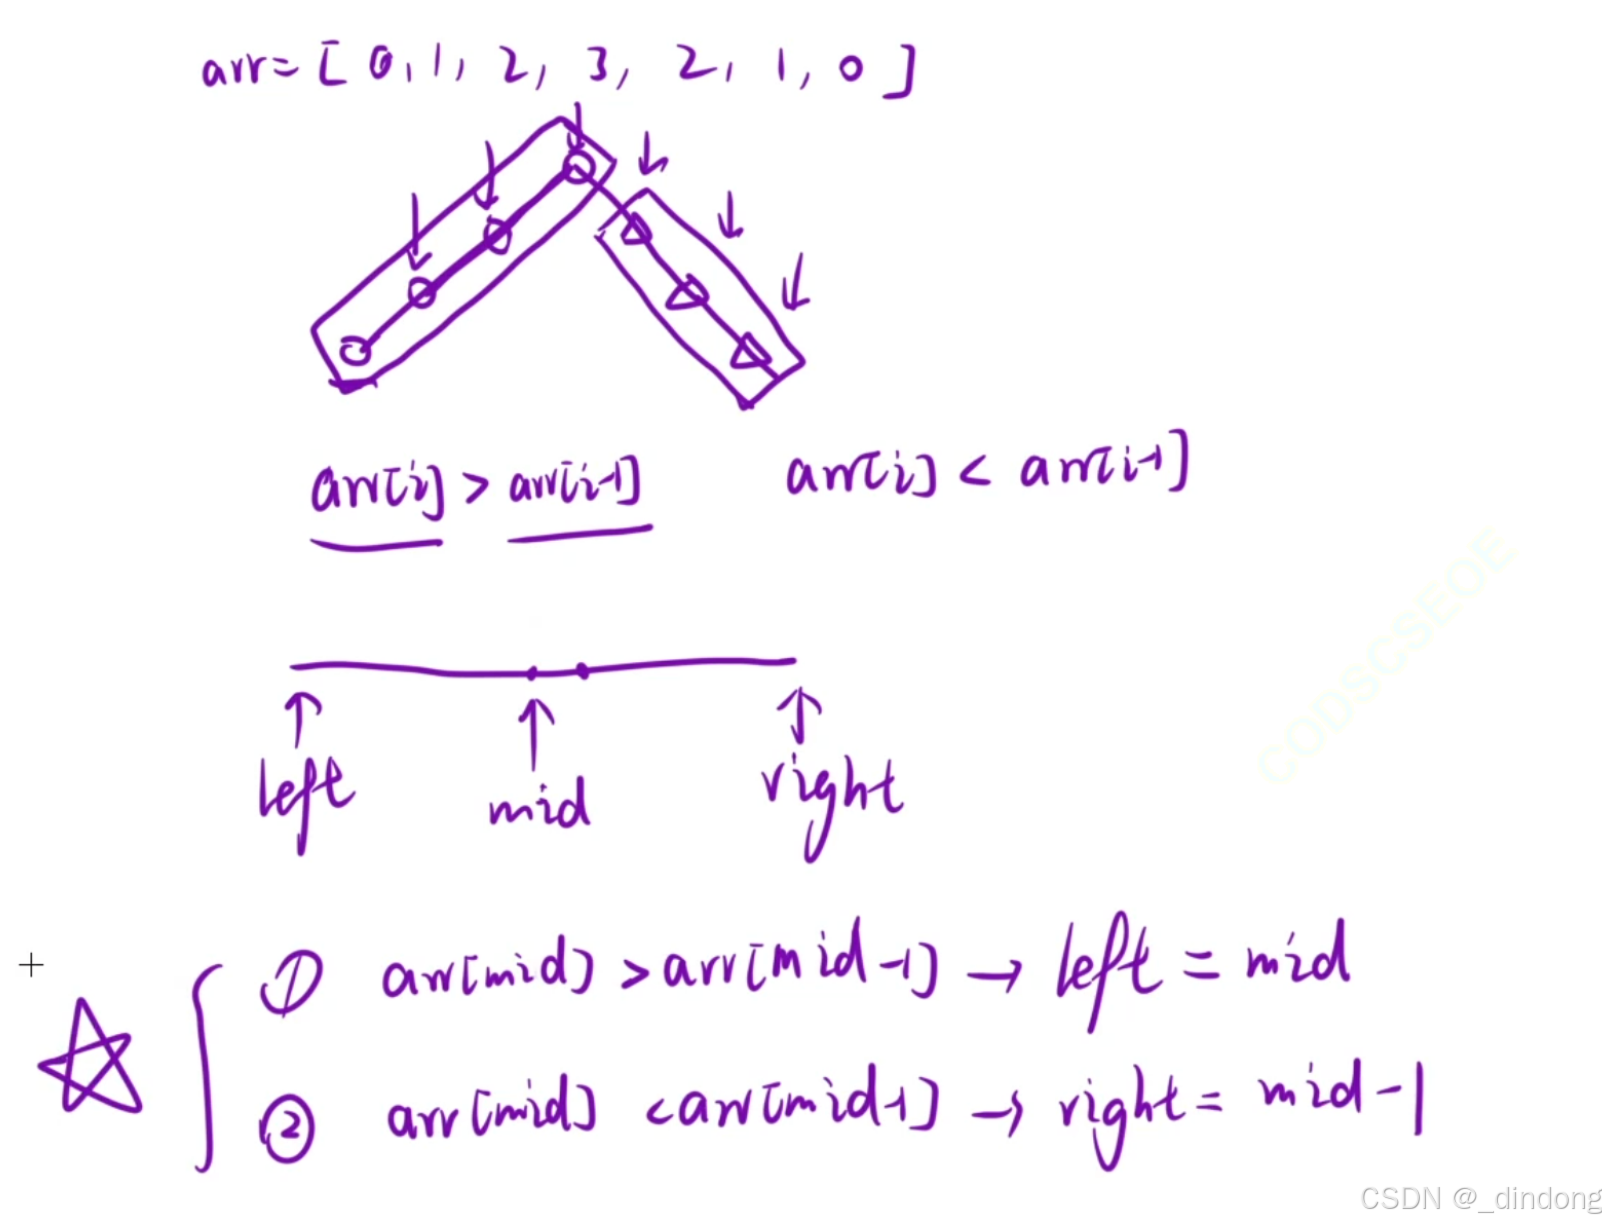 arr=[0,1,2,3,2,1,0]
arr[i] > arr[i-1]
arr[i] < arr[i-1]
left
mid
right
① arr[mid] > arr[mid-1] → left = mid
② arr[mid] < arr[mid-1] → right = mid-1
CODSCSEOE
CSDN @_dindong